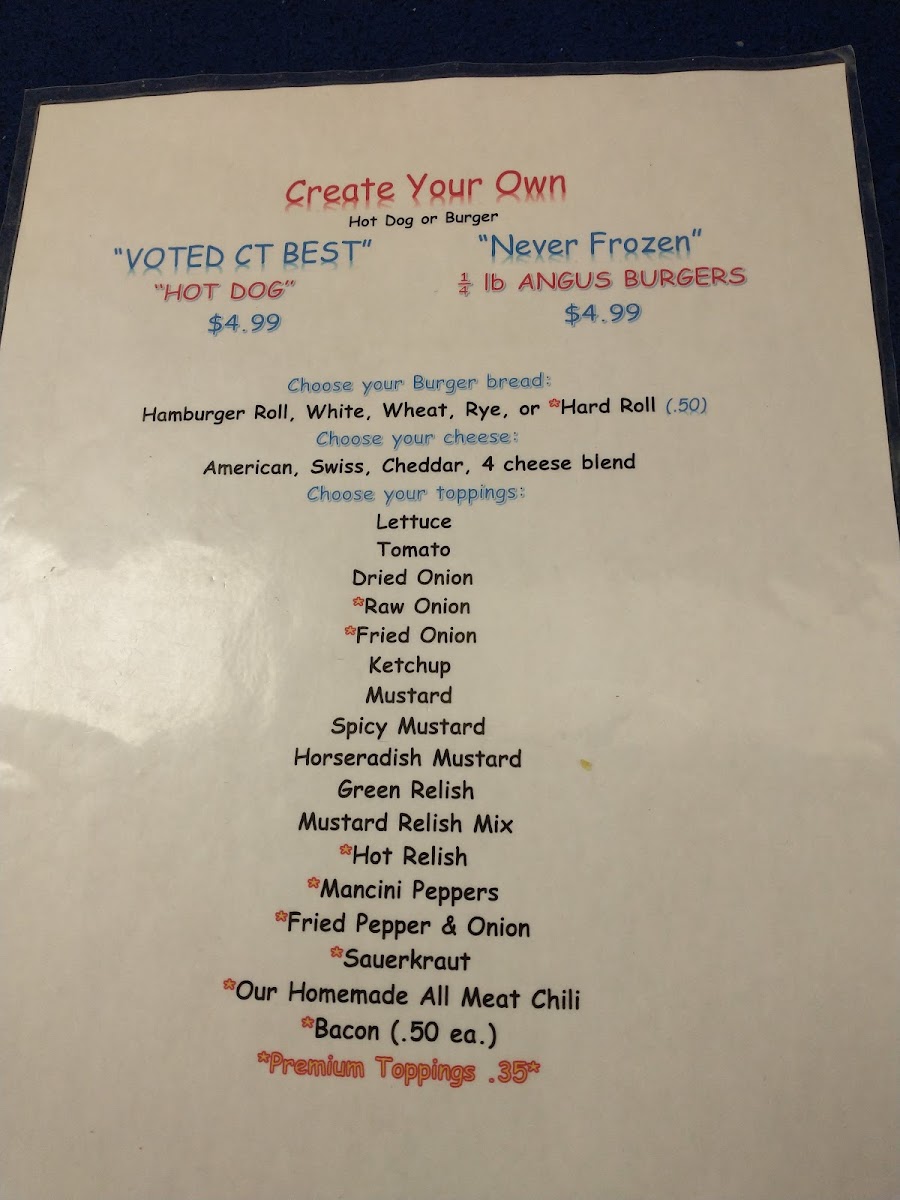 Create Your Own
Hot Dog or Burger
"VOTED CT BEST"
"HOT DOG"
$4.99
"Never Frozen"
¼ lb ANGUS BURGERS
$4.99
Choose your Burger bread:
Hamburger Roll, White, Wheat, Rye, or *Hard Roll (.50)
Choose your cheese:
American, Swiss, Cheddar, 4 cheese blend
Choose your toppings:
Lettuce
Tomato
Dried Onion
*Raw Onion
*Fried Onion
Ketchup
Mustard
Spicy Mustard
Horseradish Mustard
Green Relish
Mustard Relish Mix
*Hot Relish
*Mancini Peppers
*Fried Pepper & Onion
*Sauerkraut
*Our Homemade All Meat Chili
*Bacon (.50 ea.)
*Premium Toppings .35*